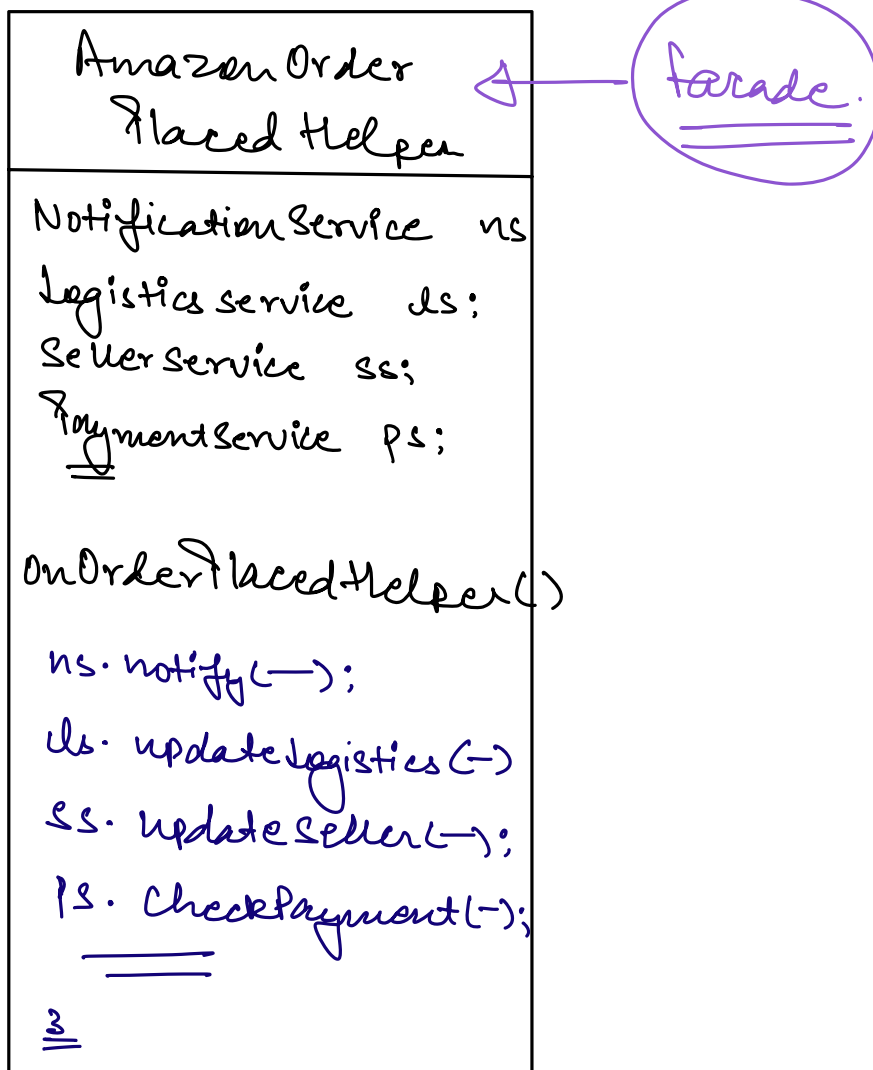 Amazon Order
Placed Helper
Facade.
NotificationService ns
Logistics service ls;
Seller Service ss;
PaymentService ps;
onOrderPlacedHelper()
ns. notify(—);
ls. updateLogistics(-)
ss. updateSeller(—);
ps. CheckPayment(-);
}